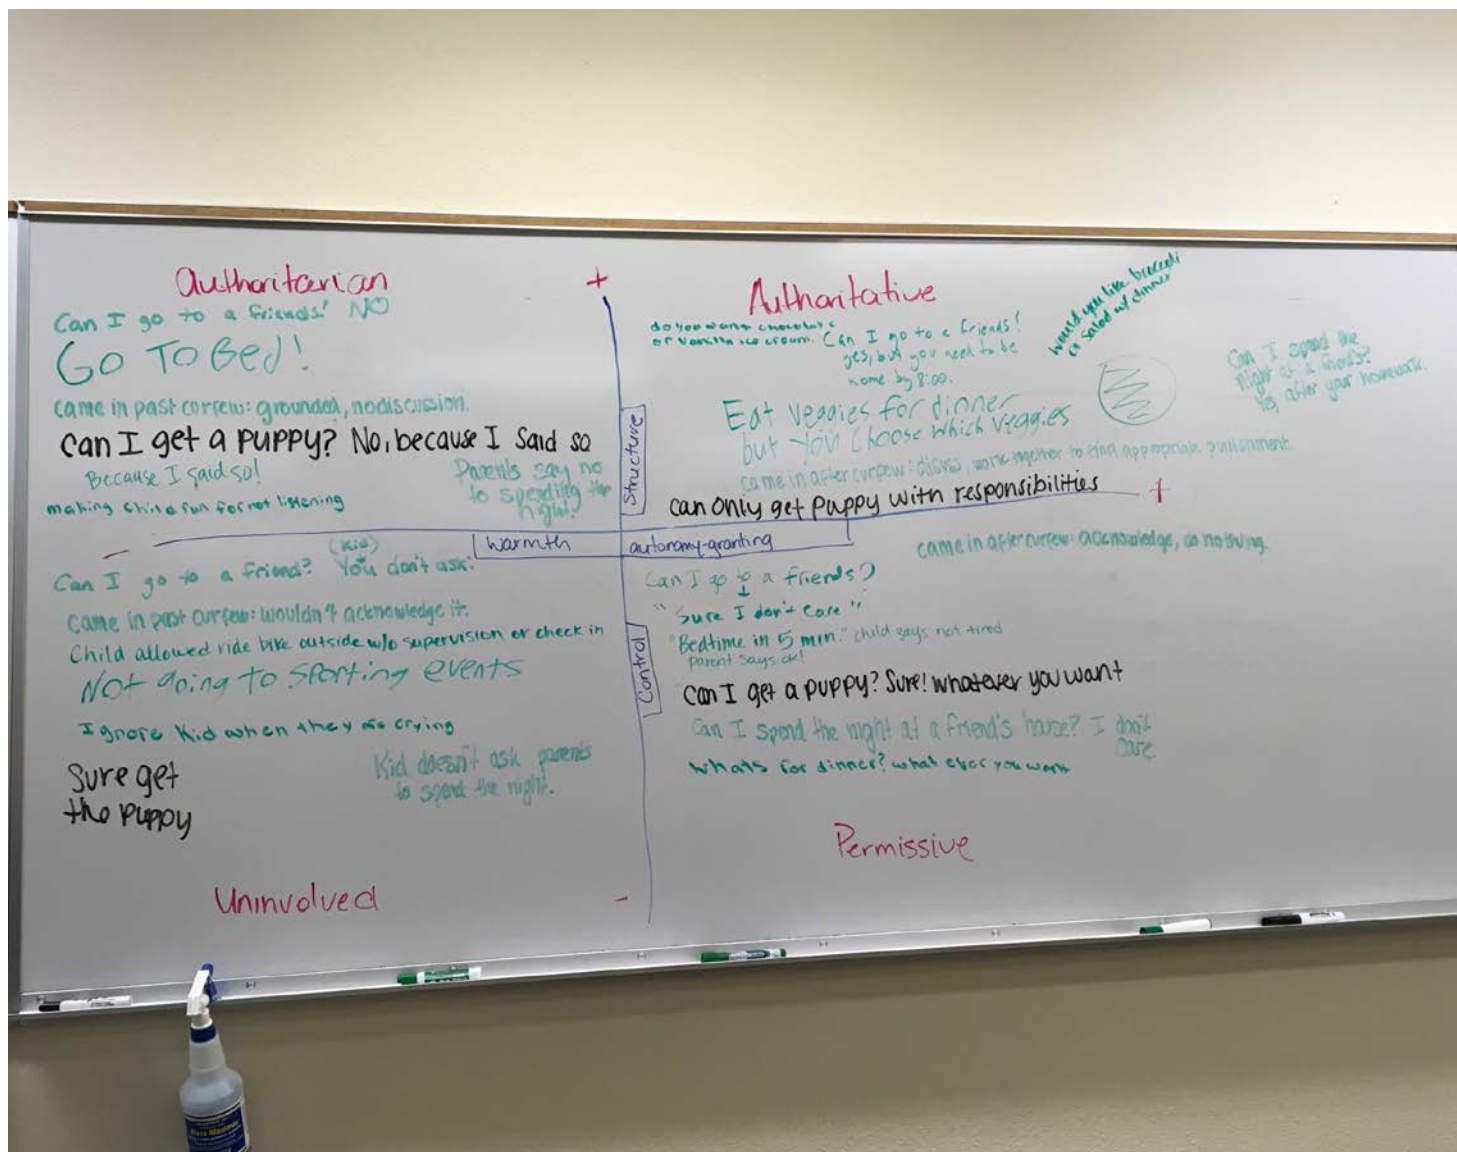 Authoritarian
Can I go to a friends? NO
GO TO Bed!
came in past curfew: grounded, no discussion.
can I get a puppy? No, because I said so
Because I said so!
Parents say no
to spending the
night.
making child run for not listening
+
Authoritative
do you want chocolate
or vanilla ice cream.
Can I go to a friends?
yes, but you need to be
home by 8:00.
would you like broccoli
or salad w/ dinner
Can I spend the
night at a friends?
Yes, after your homework.
Eat veggies for dinner
but you choose which veggies
came in after curfew: discuss, work together to find appropriate punishment
can only get puppy with responsibilities
+
Structure
-
warmth
autonomy-granting
Control
(Kid)
Can I go to a friend? You don't ask.
came in past curfew: wouldn't acknowledge it.
Child allowed ride bike outside w/o supervision or check in
Not going to sporting events
Ignore Kid when they are crying
Kid doesn't ask parents
to spend the night.
Sure get
the puppy
Uninvolved
-
came in after curfew: acknowledge, do nothing.
Can I go to a friends?
"Sure I don't care"
"Bedtime in 5 min." child says not tired
parent says ok!
Can I get a puppy? Sure! whatever you want
Can I spend the night at a friend's house? I don't
care
whats for dinner? what ever you want
Permissive